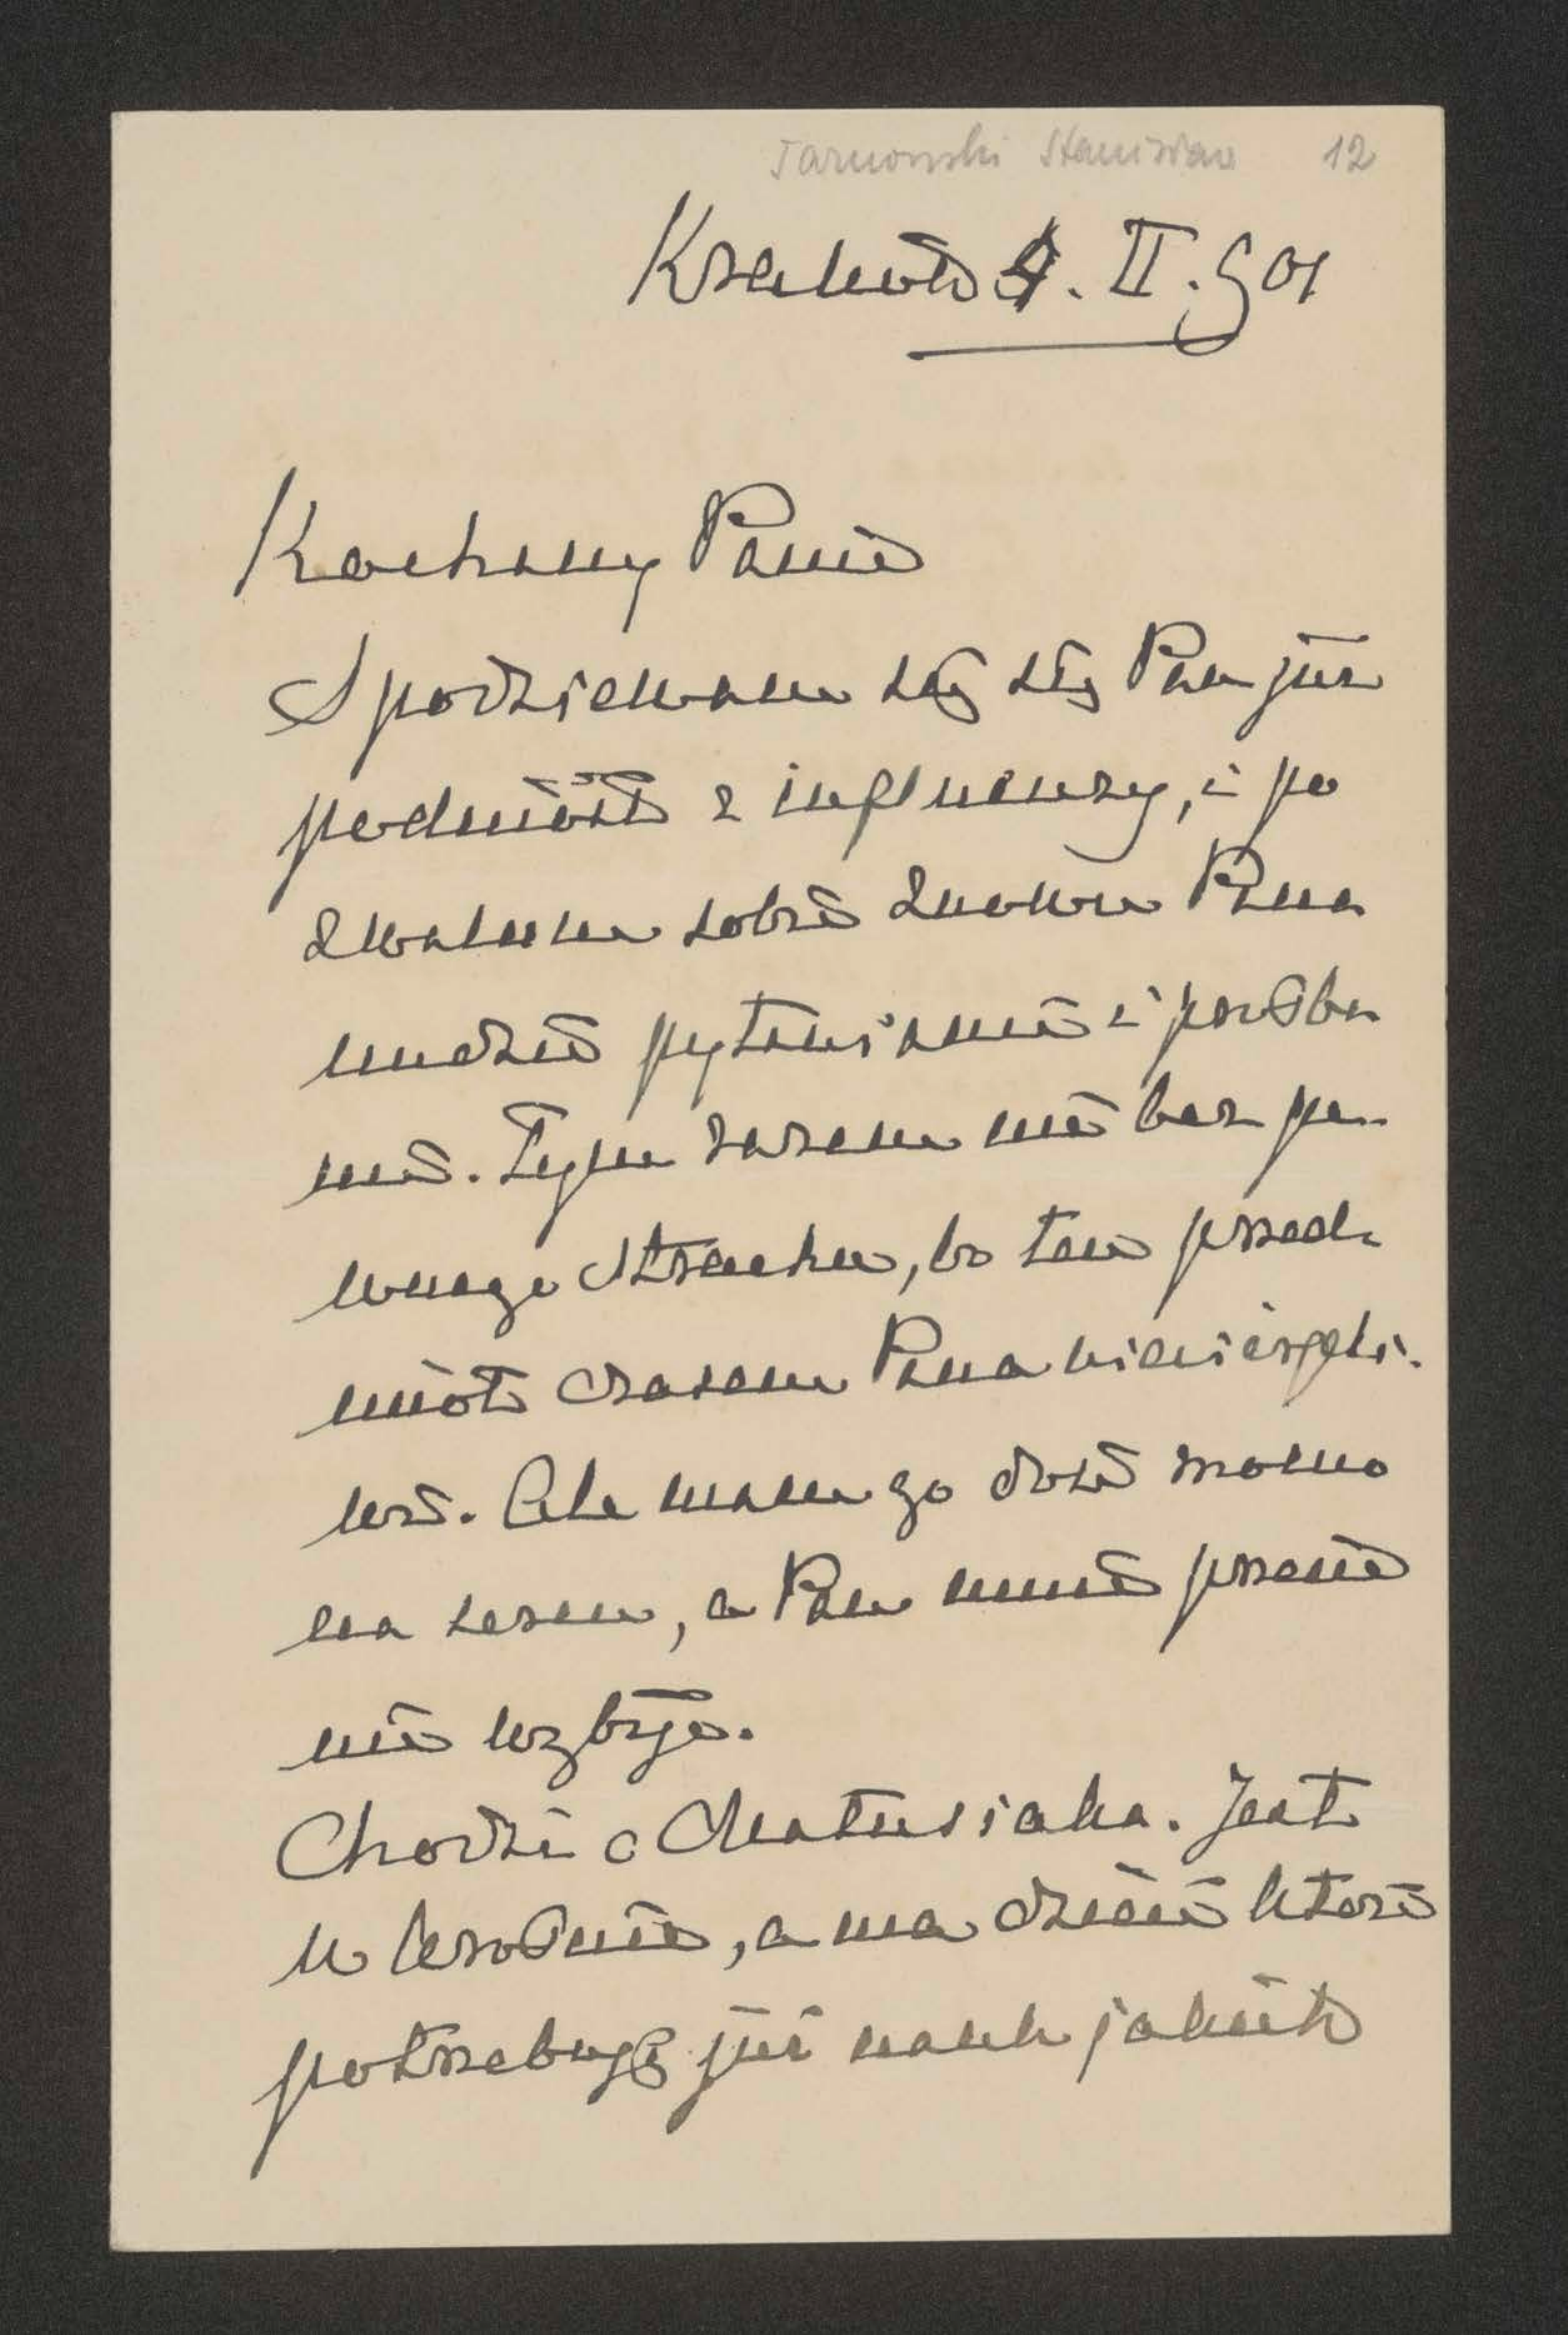 Tarnowski Stanisław 12
Kraków 9. II. 901
Kochany Panie
Spodziewam się się Pan już
podniósł z influenzy, i po
zwalam sobie znowu Pana
nudzić pytaniami i prośba
mi. Tym razem nie bez pe-
wnego strachu, bo ten przed-
miot czasem Pana niecierpli-
wi. Ale mam go dość mocno
na sercu, a Pan mnie przecie
nie wybije.
Chodzi o Matusiaka. Jest
w Brodnie, a ma dzieci które
potrzebują już nauk jakich